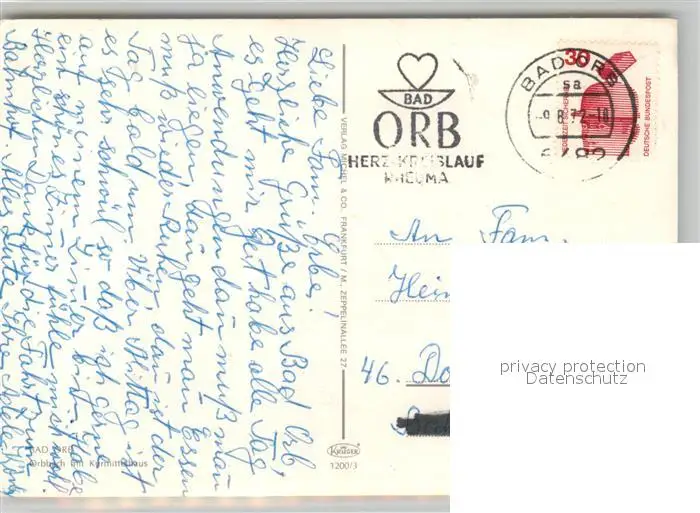 Liebe Fam. Orbe!
Herzliche Grüße aus Bad Orb,
es geht mir gut habe alle Tag
Anwendungen dan muß man
ja liegen, dan geht man Essen
muß wieder Ruhen, dan ist der
Tag bad um. Über Mittag ist
es sehr schwül so daß ich gerne
auf meinem Zimer bin habe
ein schönes Zimer fühle mich wohl
Herzlichen Dank für die Fahrt zum
Bahnhof. Alles Gute Ihre
BAD ORB
Orbbach mit Kurmittelhaus
VERLAG MICHEL & CO. FRANKFURT / M., ZEPPELINALLEE 27
KRÜGER
1200/3
BAD
ORB
HERZ-KREISLAUF
RHEUMA
BAD ORB
sa
-9.8.72-10
6482
30
JEDERZEIT SICHERHEIT
DEUTSCHE BUNDESPOST
An Fam.
Hei
46. Do
privacy protection
Datenschutz